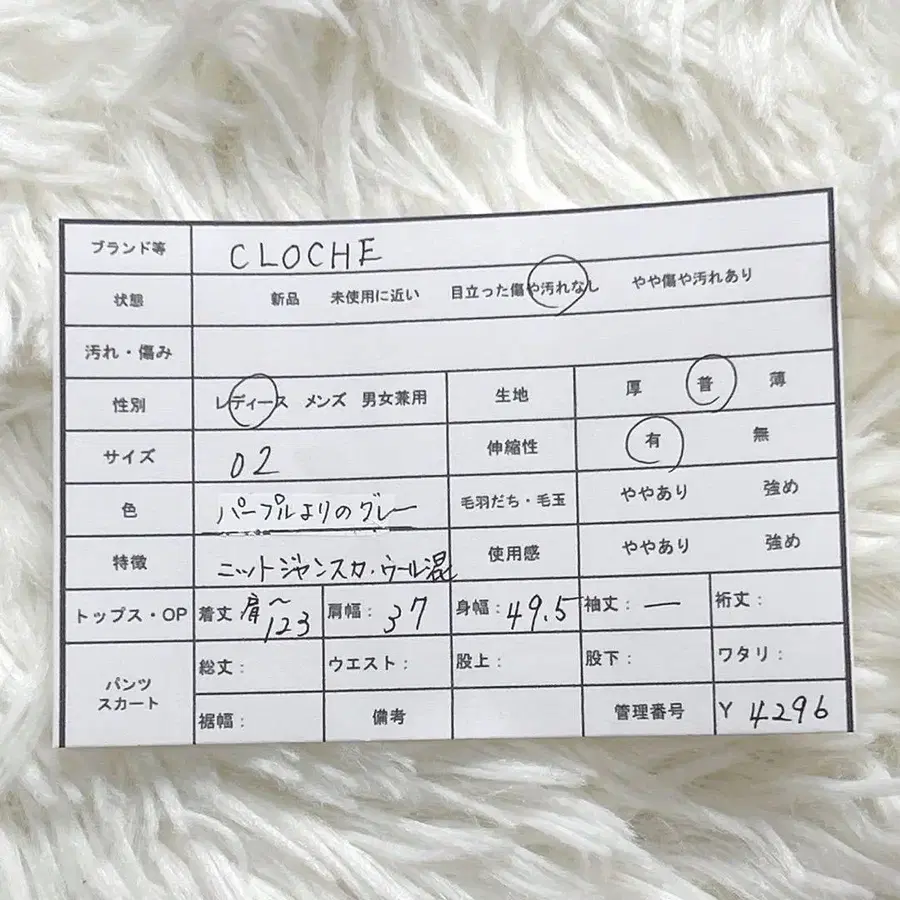 ブランド等 CLOCHE
状態 新品 未使用に近い 目立った傷や汚れなし やや傷や汚れあり
汚れ・傷み
性別 レディース メンズ 男女兼用 生地 厚 普 薄
サイズ 02 伸縮性 有 無
色 パープルよりのグレー 毛羽だち・毛玉 ややあり 強め
特徴 ニットジャンスカ・ウール混 使用感 ややあり 強め
トップス・OP 着丈 肩〜123 肩幅: 37 身幅: 49.5 袖丈: — 裄丈:
パンツ スカート 総丈: ウエスト: 股上: 股下: ワタリ:
裾幅: 備考 管理番号 Y 4296